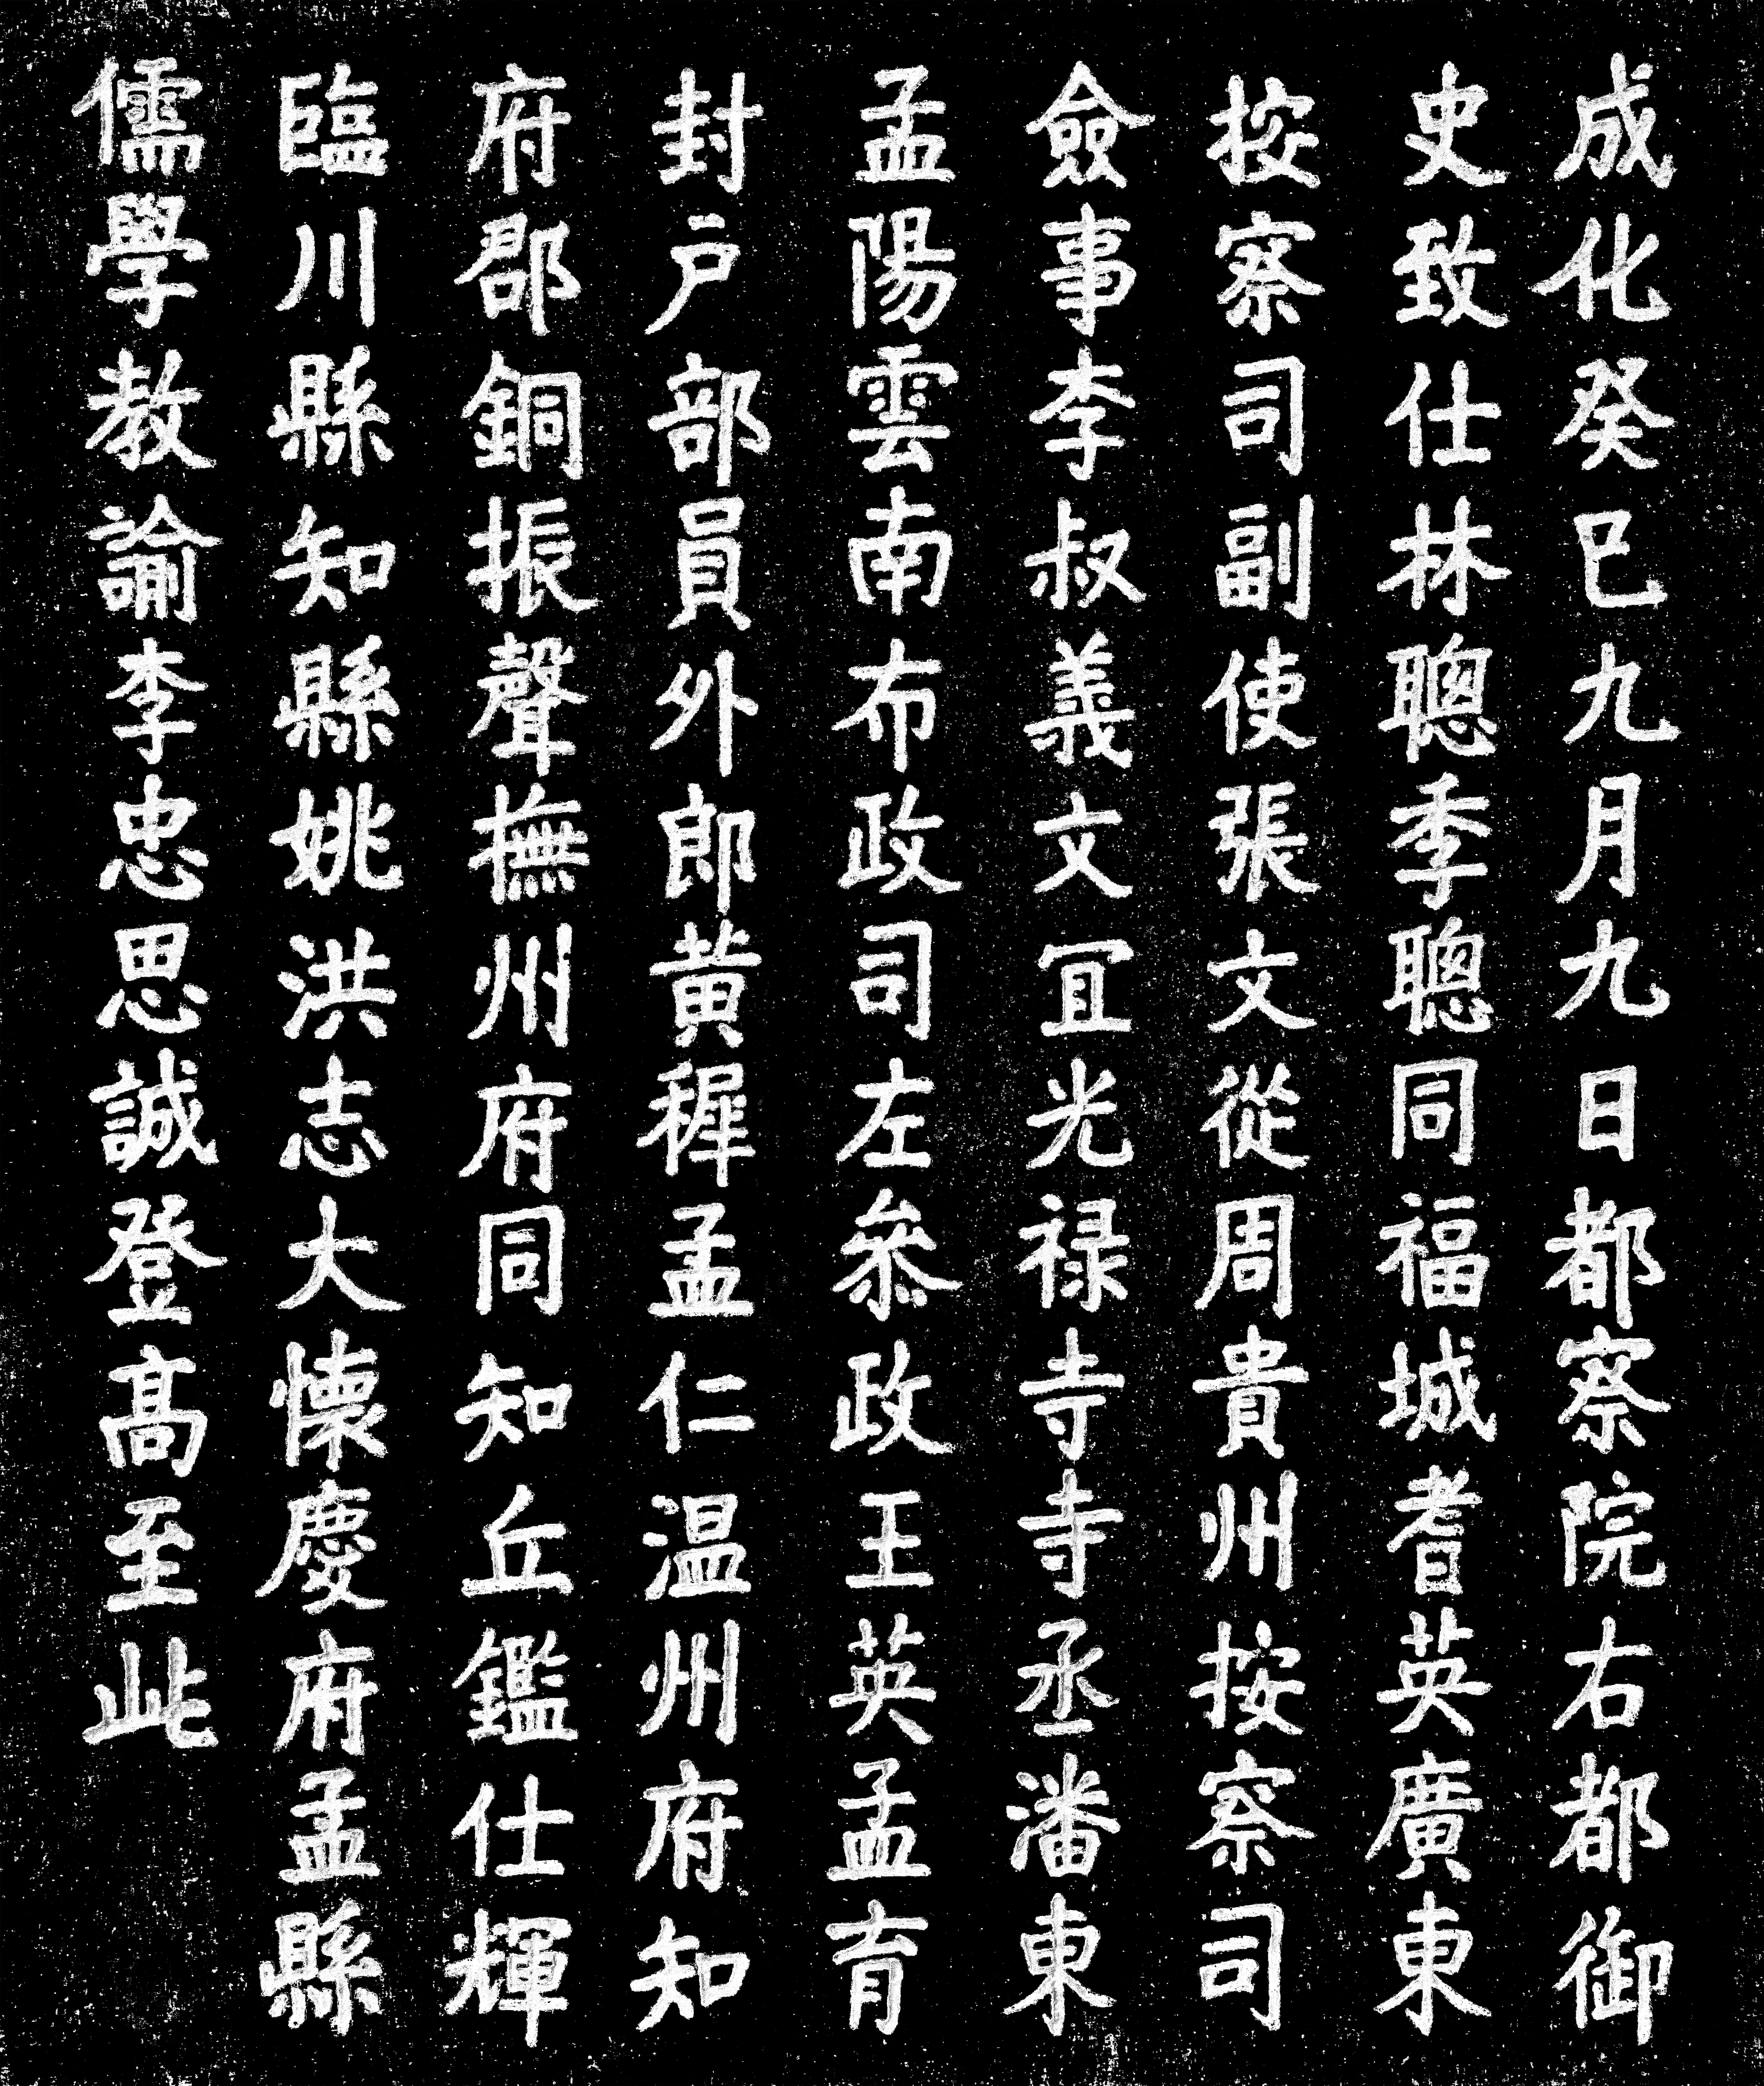 成化癸巳九月九日都察院右都御
史致仕林聰季聰同福城耆英廣東
按察司副使張文從周貴州按察司
僉事李叔義文冝光禄寺寺丞潘東
孟陽雲南布政司左叅政王英孟育
封户部員外郎黄穉孟仁温州府知
府郡銅振聲撫州府同知丘鑑仕輝
臨川縣知縣姚洪志大懐慶府孟縣
儒學教諭李忠思誠登髙至此